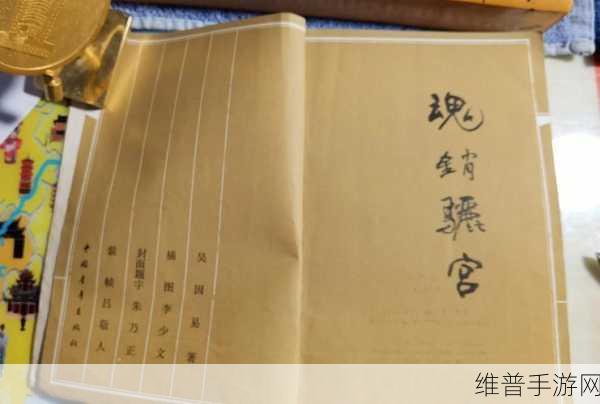 魂销骊宫
吴因易 著
插图 李少文
封面题字 朱乃正
装帧 吕敬人
中国青年出版社
维普手游网